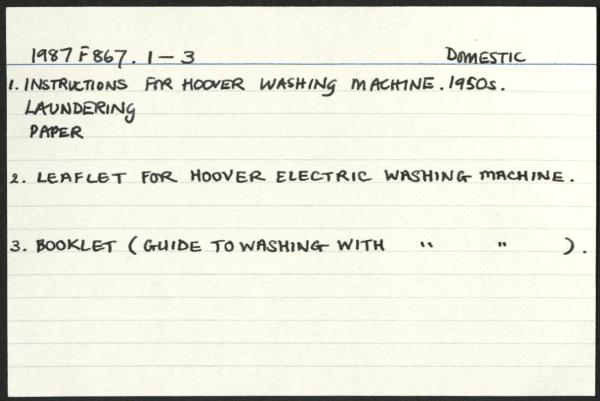 1987 F867. 1 – 3 DOMESTIC
1. INSTRUCTIONS FOR HOOVER WASHING MACHINE. 1950s.
LAUNDERING
PAPER
2. LEAFLET FOR HOOVER ELECTRIC WASHING MACHINE.
3. BOOKLET ( GUIDE TO WASHING WITH " " ).